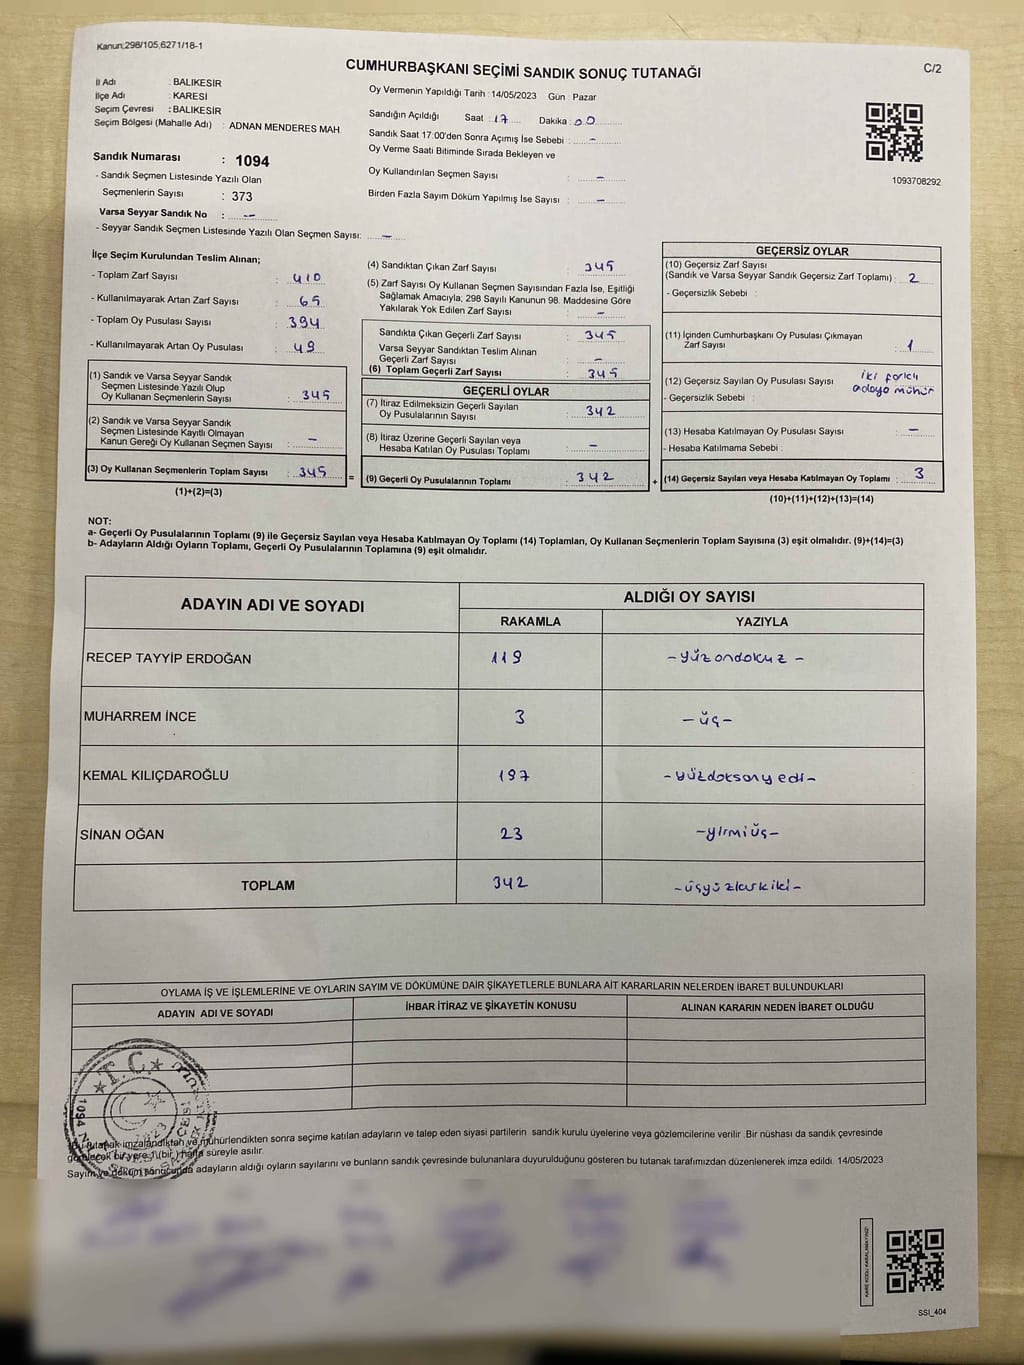 Kanun;298/105,6271/18-1
CUMHURBAŞKANI SEÇİMİ SANDIK SONUÇ TUTANAĞI
C/2
İl Adı : BALIKESİR
İlçe Adı : KARESİ
Seçim Çevresi : BALIKESİR
Seçim Bölgesi (Mahalle Adı) : ADNAN MENDERES MAH.
Sandık Numarası : 1094
- Sandık Seçmen Listesinde Yazılı Olan
Seçmenlerin Sayısı : 373
Varsa Seyyar Sandık No : -
- Seyyar Sandık Seçmen Listesinde Yazılı Olan Seçmen Sayısı: -
Oy Vermenin Yapıldığı Tarih : 14/05/2023 Gün : Pazar
Sandığın Açıldığı Saat : 17 Dakika : 00
Sandık Saat 17:00'den Sonra Açımış İse Sebebi : -
Oy Verme Saati Bitiminde Sırada Bekleyen ve
Oy Kullandırılan Seçmen Sayısı : -
Birden Fazla Sayım Döküm Yapılmış İse Sayısı : -
1093708292
İlçe Seçim Kurulundan Teslim Alınan;
- Toplam Zarf Sayısı : 410
- Kullanılmayarak Artan Zarf Sayısı : 65
- Toplam Oy Pusulası Sayısı : 394
- Kullanılmayarak Artan Oy Pusulası : 49
(1) Sandık ve Varsa Seyyar Sandık
Seçmen Listesinde Yazılı Olup
Oy Kullanan Seçmenlerin Sayısı : 345
(2) Sandık ve Varsa Seyyar Sandık
Seçmen Listesinde Kayıtlı Olmayan
Kanun Gereği Oy Kullanan Seçmen Sayısı : -
(3) Oy Kullanan Seçmenlerin Toplam Sayısı : 345
(1)+(2)=(3)
=
(4) Sandıktan Çıkan Zarf Sayısı : 345
(5) Zarf Sayısı Oy Kullanan Seçmen Sayısından Fazla İse, Eşitliği
Sağlamak Amacıyla; 298 Sayılı Kanunun 98. Maddesine Göre
Yakılarak Yok Edilen Zarf Sayısı : -
Sandıkta Çıkan Geçerli Zarf Sayısı : 345
Varsa Seyyar Sandıktan Teslim Alınan
Geçerli Zarf Sayısı : -
(6) Toplam Geçerli Zarf Sayısı : 345
GEÇERLİ OYLAR
(7) İtiraz Edilmeksizin Geçerli Sayılan
Oy Pusulalarının Sayısı : 342
(8) İtiraz Üzerine Geçerli Sayılan veya
Hesaba Katılan Oy Pusulası Toplamı : -
(9) Geçerli Oy Pusulalarının Toplamı : 342
+
GEÇERSİZ OYLAR
(10) Geçersiz Zarf Sayısı
(Sandık ve Varsa Seyyar Sandık Geçersiz Zarf Toplamı) : 2
- Geçersizlik Sebebi :
(11) İçinden Cumhurbaşkanı Oy Pusulası Çıkmayan
Zarf Sayısı : 1
(12) Geçersiz Sayılan Oy Pusulası Sayısı : iki farklı
- Geçersizlik Sebebi : adaya mühür
(13) Hesaba Katılmayan Oy Pusulası Sayısı : -
- Hesaba Katılmama Sebebi :
(14) Geçersiz Sayılan veya Hesaba Katılmayan Oy Toplamı : 3
(10)+(11)+(12)+(13)=(14)
NOT:
a- Geçerli Oy Pusulalarının Toplamı (9) ile Geçersiz Sayılan veya Hesaba Katılmayan Oy Toplamı (14) Toplamları, Oy Kullanan Seçmenlerin Toplam Sayısına (3) eşit olmalıdır. (9)+(14)=(3)
b- Adayların Aldığı Oyların Toplamı, Geçerli Oy Pusulalarının Toplamına (9) eşit olmalıdır.
ADAYIN ADI VE SOYADI
ALDIĞI OY SAYISI
RAKAMLA YAZIYLA
RECEP TAYYİP ERDOĞAN 119 -yüzondokuz-
MUHARREM İNCE 3 -üç-
KEMAL KILIÇDAROĞLU 197 -yüzdoksanyedi-
SİNAN OĞAN 23 -yirmiüç-
TOPLAM 342 -üçyüzkırkiki-
OYLAMA İŞ VE İŞLEMLERİNE VE OYLARIN SAYIM VE DÖKÜMÜNE DAİR ŞİKAYETLERLE BUNLARA AİT KARARLARIN NELERDEN İBARET BULUNDUKLARI
ADAYIN ADI VE SOYADI İHBAR İTİRAZ VE ŞİKAYETİN KONUSU ALINAN KARARIN NEDEN İBARET OLDUĞU
T.C.
1094
2023
Bu tutanak imzalandıktan ve mühürlendikten sonra seçime katılan adayların ve talep eden siyasi partilerin sandık kurulu üyelerine veya gözlemcilerine verilir .Bir nüshası da sandık çevresinde
görülecek bir yere 1 (bir ) hafta süreyle asılır.
Sayım ve döküm sonucunda adayların aldığı oyların sayılarını ve bunların sandık çevresinde bulunanlara duyurulduğunu gösteren bu tutanak tarafımızdan düzenlenerek imza edildi. 14/05/2023
KARE KODU KARALAMAYINIZ!
SSI_404